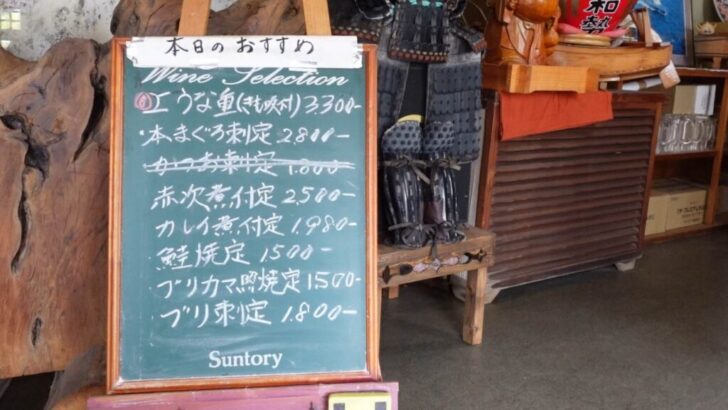 本日のおすすめ
Wine Selection
上うな重(きも吸付)3.300-
・本まぐろ刺定 2800-
かつお刺定 1.800-
赤次煮付定 2500-
カレイ煮付定 1.980-
鮭焼定 1500-
ブリカマ照焼定 1500-
ブリ刺定 1.800-
Suntory
和勢